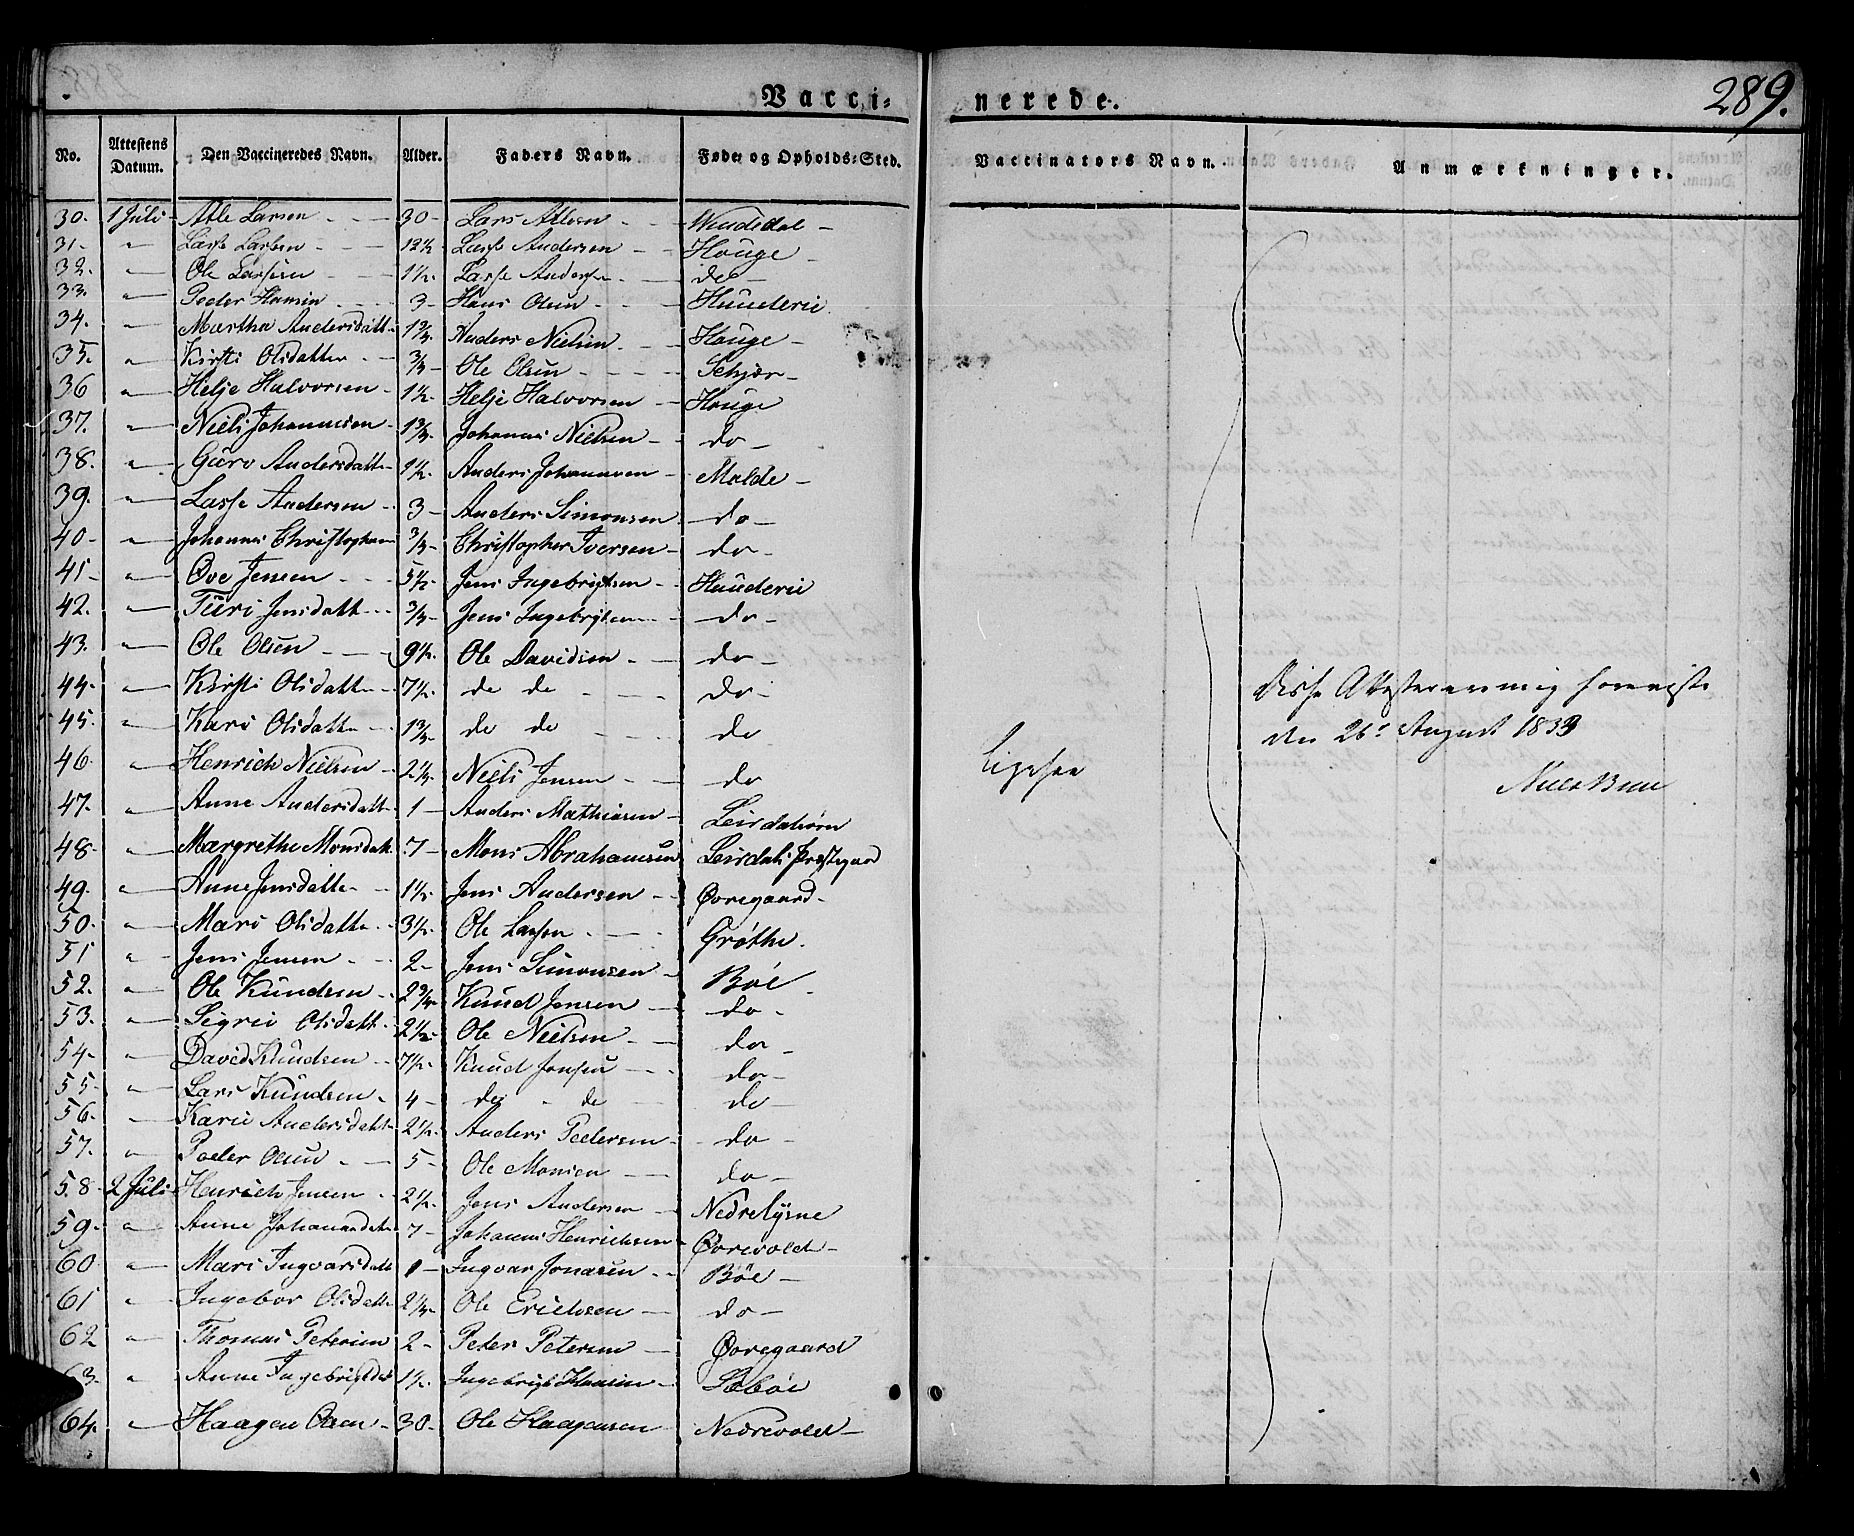 289.
Vaccinerede.
No. Attestens Datum. Den Vaccineredes Navn. Alder. Faders Navn. Føde- og Opholds-Sted. Vaccinators Navn. Anmærkninger.
30. 1 Juli Atle Larsen 30 Lars Atlesen
31 " Lasse Lassen 12½ Lasse Andersen Houge
32. " Ole Lassen 1½ Lasse Andersen do
33. " Peder Hansen 3 Hans Olsen Hunderie
34. " Martha Andersdatt Anders Nielsen Houge
35. " Kirsti Olsdatter ¾ Ole Olsen Schjær
36 " Helje Halvorsen 1½ Helje Halvorsen Houge
37. " Niels Johannesen 1¾ Johannes Nielsen do
38. " Guro Andersdatt 1½ Anders Johannesen Molde
39. " Lasse Andersen 3 Anders Simonsen do
40. " Johannes Christophersen ¾ Christopher Iversen do
41 " Ove Jensen 5½ Jens Ingebrigtsen Hunderie
42. " Turi Jensdatt ¾ Jens Ingebrigtsen do
43. " Ole Olsen 9½ Ole Davidsen do
44. " Kirsti Olsdatt 7½ do do do
45. " Kari Olsdatt 1¾ do do do
46 " Henrich Nielsen 2¼ Niels Jensen do
47. " Anne Andersdatt 1 Anders Mathiasen Leirdalsøren
48. " Margrethe Monsdatt 7 Mons Abrahamsen Leirdals Præstegaard
49. " Anne Jensdatte 1½ Jens Andersen Øvregaard
50. " Mari Olsdatt 3½ Ole Lassen Grøthe
51 " Jens Jensen 2 Jens Simonsen Bøe
52. " Ole Knudsen 2¾ Knud Jensen do
53. " Sigrie Olsdatt 2½ Ole Nielsen do
54 " David Knudsen 7½ Knud Jensen do
55 " Lars Knudsen 4 do do do
56. " Karie Andersdatt 2½ Anders Pedersen do
57. " Peder Olsen 5 Ole Monsen do
58 2 Juli Henrich Jensen 2½ Jens Andersen Nedrelysne
59. " Anne Johannesdatt 7 Johannes Henrichsen Øvrevold
60 " Mari Ingvarsdatt 1 Ingvar Jonasen Bøe
61 " Ingebor Olsdatt 2¼ Ole Erichsen do
62 " Thomas Petersen 2 Peter Petersen Øvregaard
63. " Anne Ingebrigtsdat 1½ Ingebrigt Hansen Sæbøe
64. " Haagen Olsen 30 Ole Haagensen Nedrevold
Ligesaa
Disse Attester ere mig foreviste
den 26de August 1839
Niels Bruu